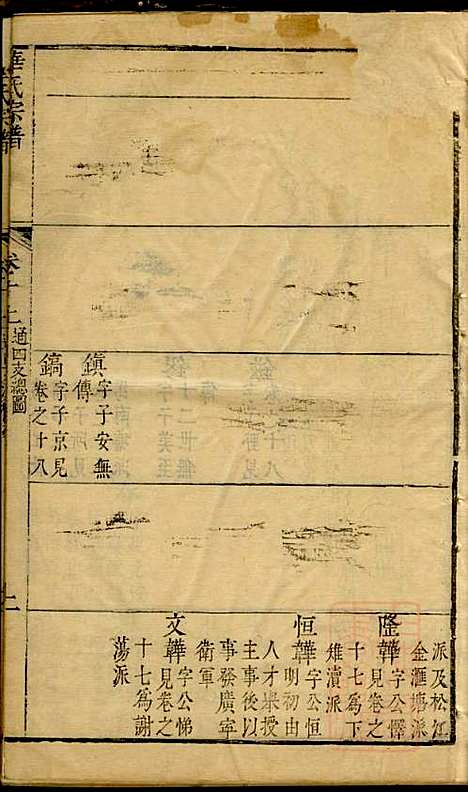 派及松江
金灘塘派
隆韡字公懌
見卷之
十七爲下
雉瀆派
恒韡字公恒
明初由
人才舉授
主事後以
事發廣寕
衛軍
文韡字公悌
見卷之
十七爲謝
蕩派
鎮字子安無
傳
鎬字子京見
卷之十八
華氏宗譜
卷十二
通四支總圖